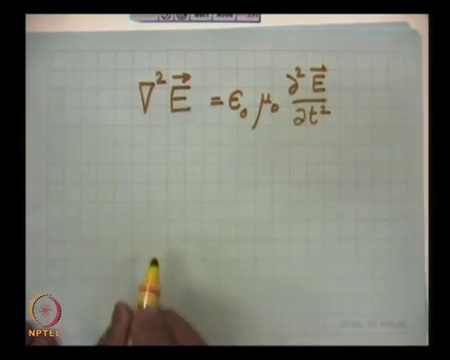 ∇² E⃗ = ϵ₀ μ₀ ∂² E⃗ / ∂t²
NPTEL